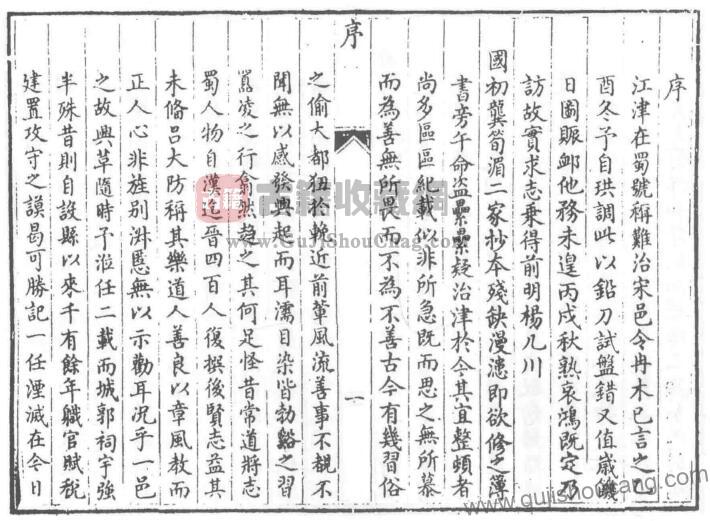 序
江津在蜀號稱難治宋邑令冉木已言之乙
酉冬予自珙調此以鉛刀試盤錯又值歲饑
日圖賑卹他務未遑丙戌秋孰哀鴻既定乃
訪故實求志乘得前明楊几川
國初龔筍湄二家抄本殘缺漫漶即欲修之簿
書旁午命盜纍纍疑治津於今其宜整頓者
尚多區區紀載似非所急既而思之無所慕
而為善無所畏而不為不善古今有幾習俗
序
一
之偷大都狃於輓近前輩風流善事不覩不
聞無以感發興起而耳濡目染皆勃谿之習
嚚凌之行翕然趨之其何足怪昔常道將志
蜀人物自漢迄晉四百人復撰後賢志益其
未備呂大防稱其樂道人善良以章風教而
正人心非旌别淑慝無以示勸耳況乎一邑
之故興草隨時予涖任二載而城郭祠宇強
半殊昔則自設縣以來千有餘年職官賦稅
建置攻守之謨曷可勝記一任湮滅在今日
古籍
古籍收藏網
www.GuJiShouCang.com
www.gujishoucang.com